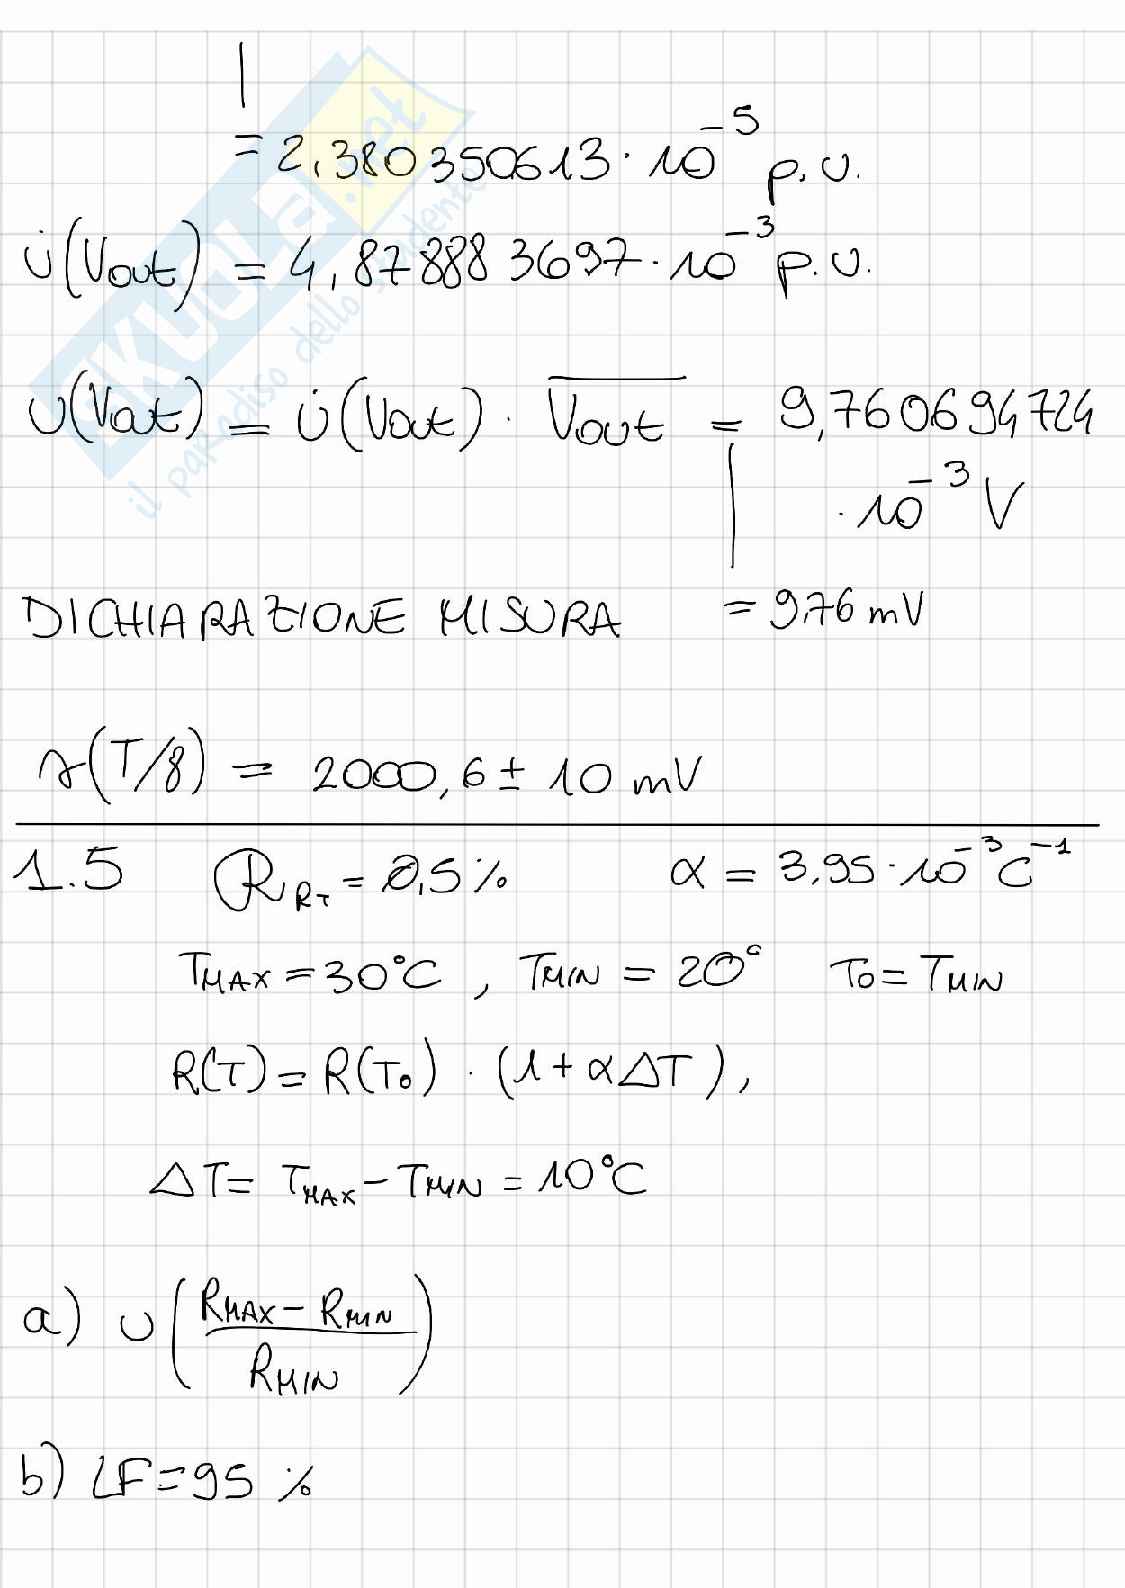 = 2,380350613 · 10^-5 p.u.
u̇(Vout) = 4,878883697 · 10^-3 p.u.
u(Vout) = u̇(Vout) · V̅o̅u̅t̅ = 9,760694724
· 10^-3 V
DICHIARAZIONE MISURA = 9,76 mV
s(T/8) = 2000,6 ± 10 mV
1.5 R_RT = 0,5 % α = 3,95 · 10^-3 C^-1
TMAX = 30°C , TMIN = 20° T0 = TMIN
R(T) = R(T0) · (1 + αΔT),
ΔT = TMAX - TMIN = 10°C
a) u(
RMAX - RMIN
RMIN
)
b) LF = 95 %
SKUOLA.net
il paradiso dello studente